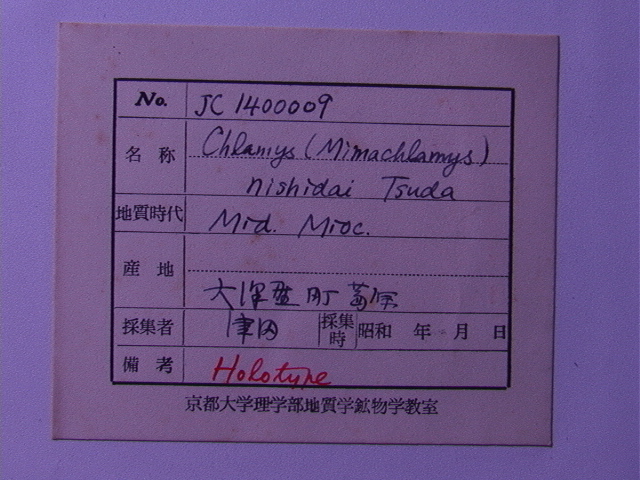 No. JC 1400009
名称 Chlamys (Mimachlamys)
nishidai Tsuda
地質時代 Mid. Mioc.
産地
大沢野町
採集者 津田 採集時 昭和 年 月 日
備考 Holotype
京都大学理学部地質学鉱物学教室